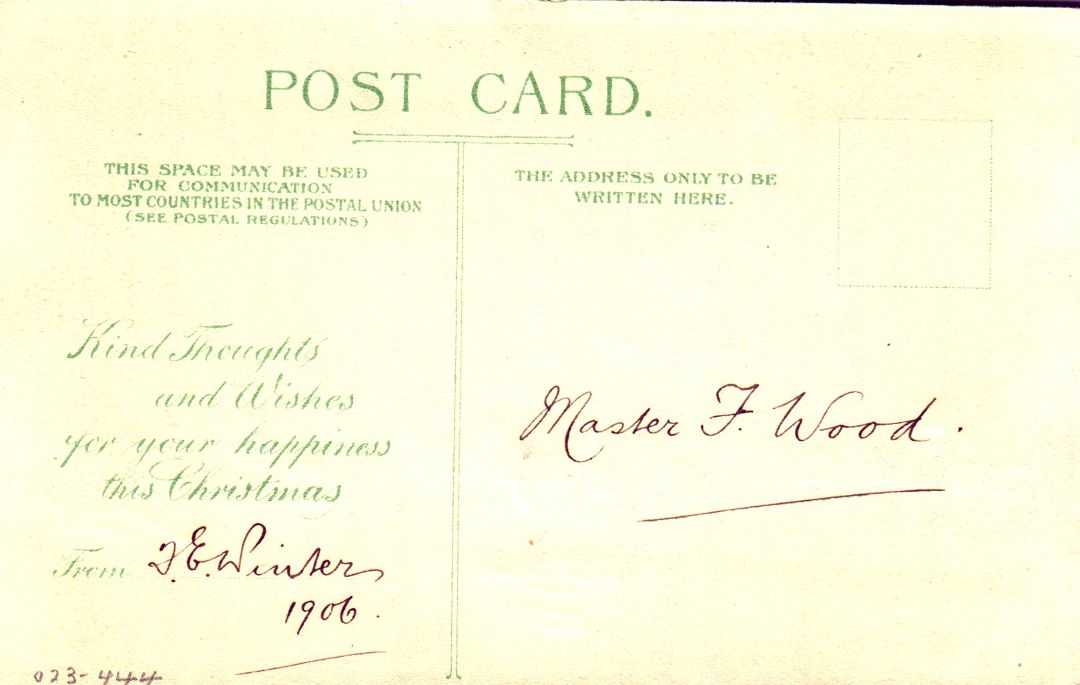 POST CARD.
THIS SPACE MAY BE USED
FOR COMMUNICATION
TO MOST COUNTRIES IN THE POSTAL UNION
(SEE POSTAL REGULATIONS)
THE ADDRESS ONLY TO BE
WRITTEN HERE.
Kind Thoughts
and Wishes
for your happiness
this Christmas
From F.E. Winter
1906.
Master F. Wood.
023-444